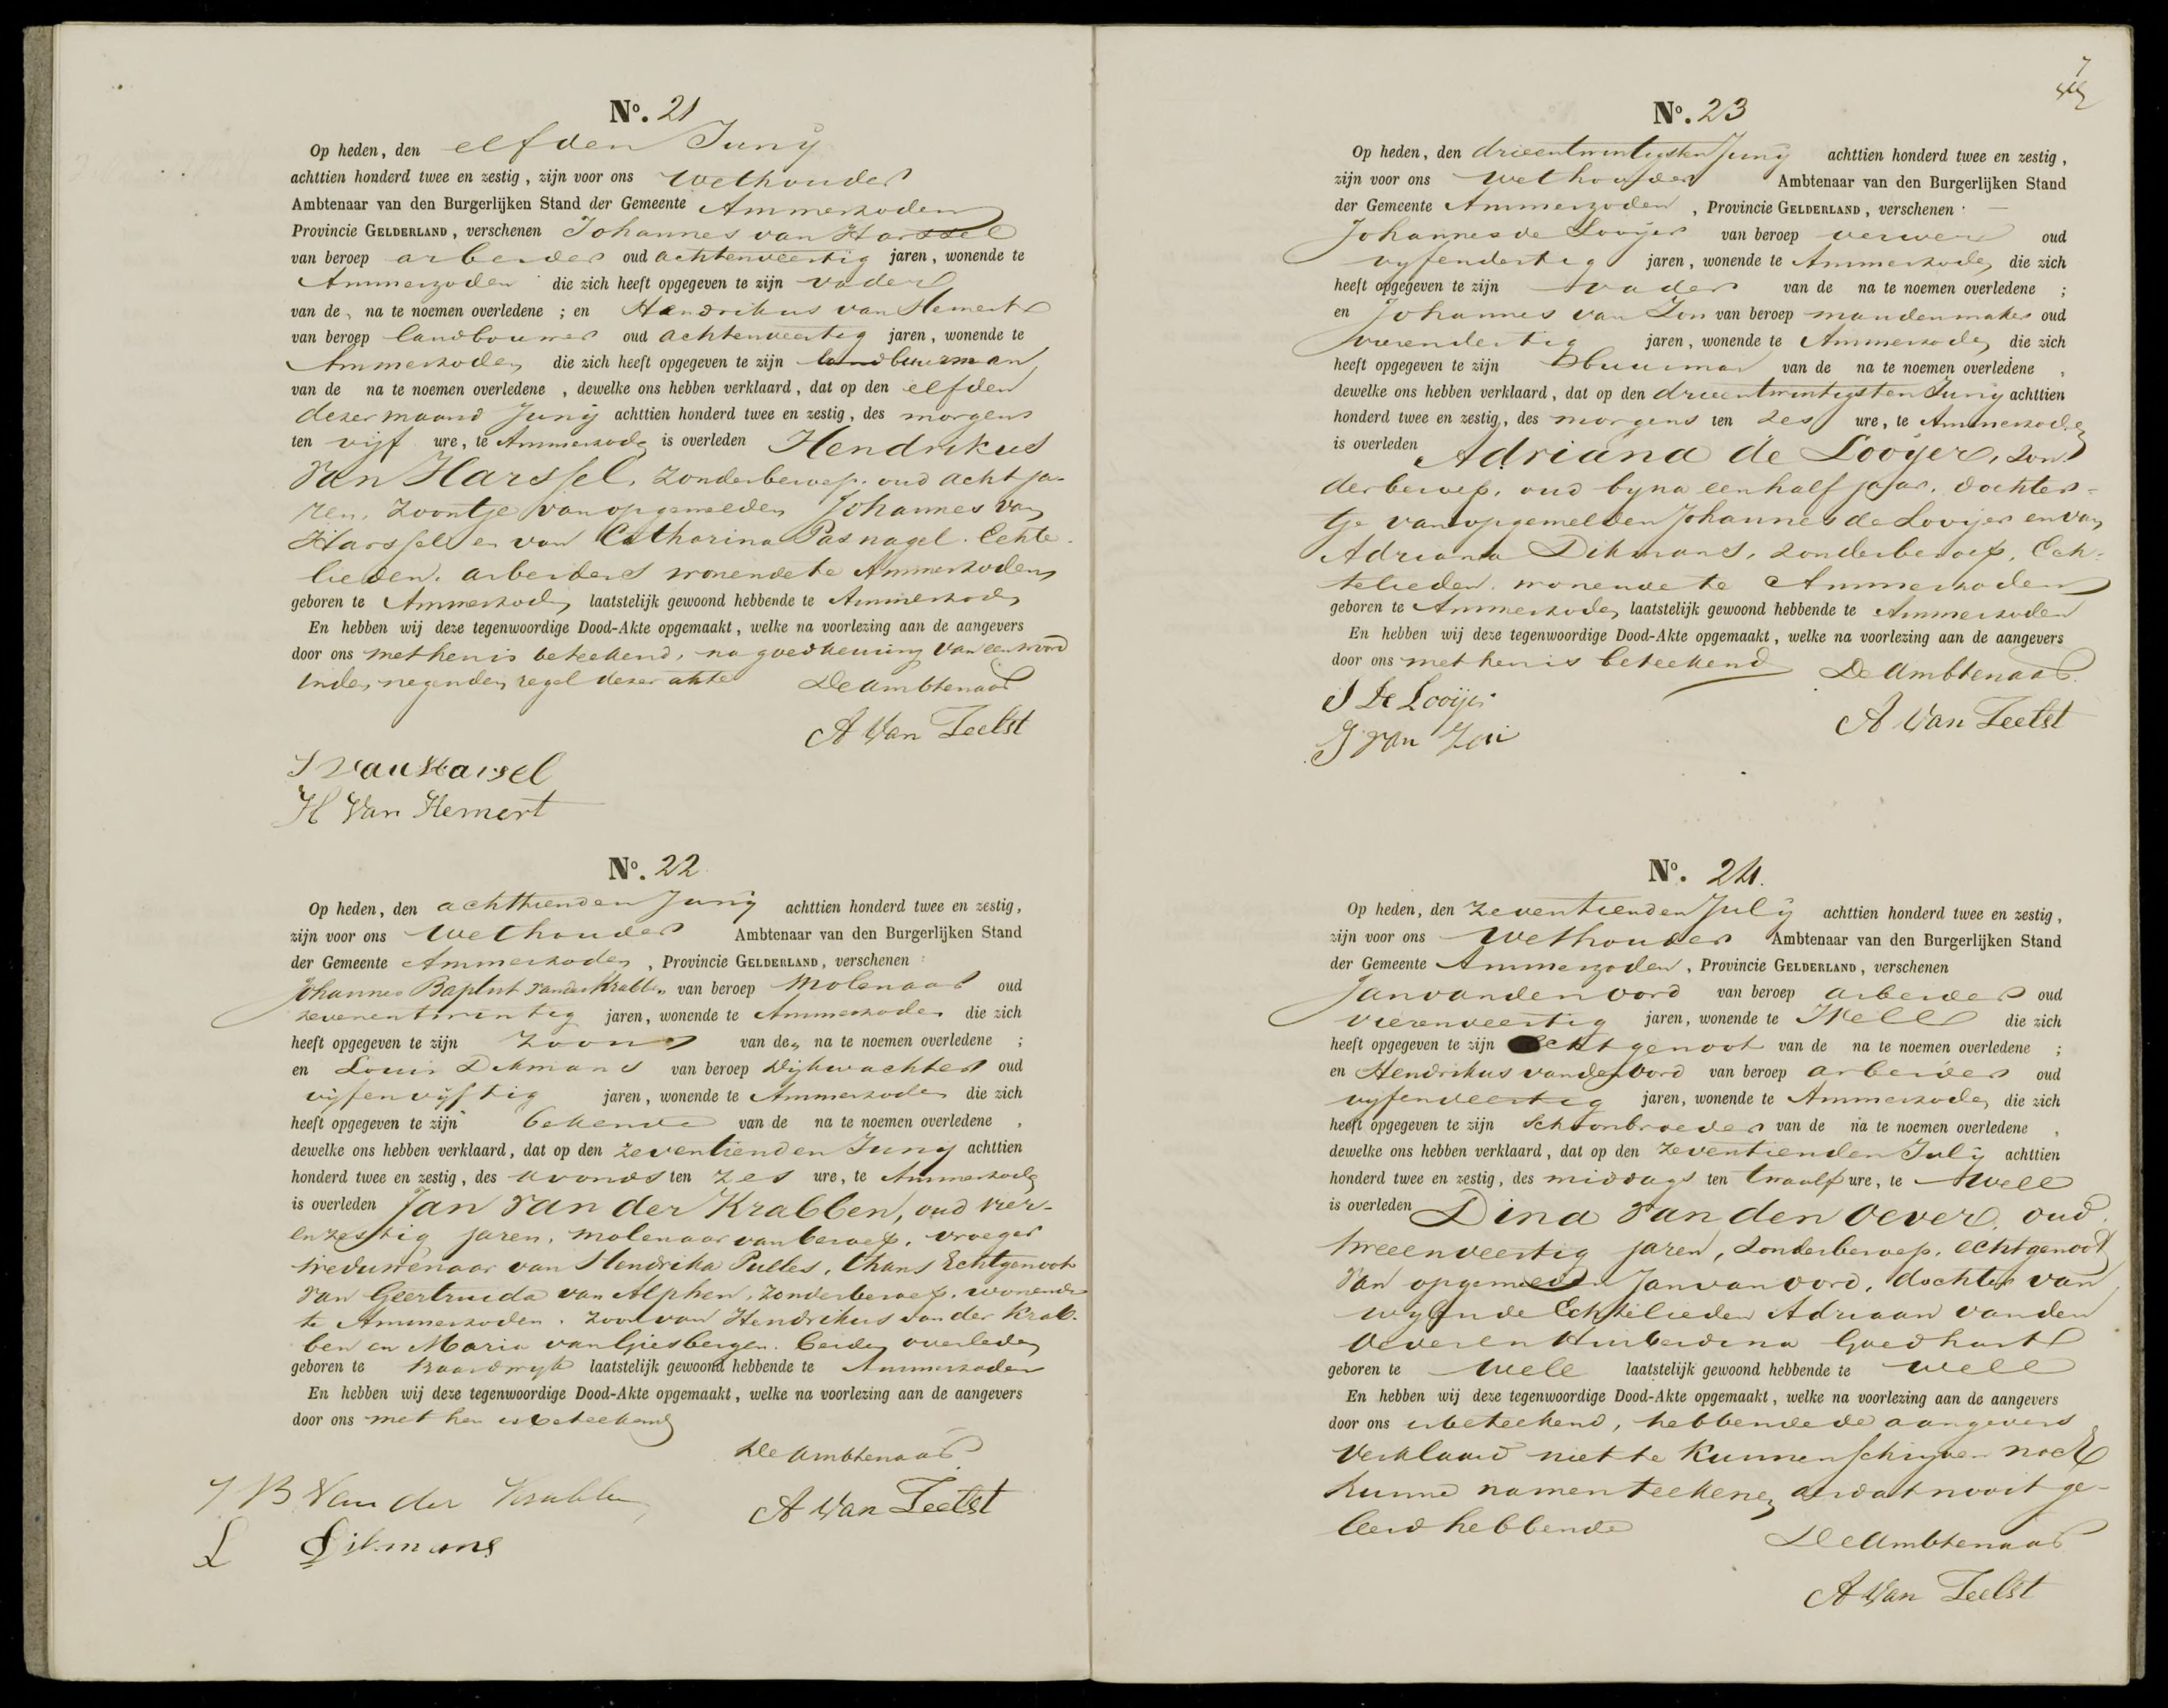 No. 21
Op heden, den elfden Junÿ
achttien honderd twee en zestig, zijn voor ons Wethouder
Ambtenaar van den Burgerlijken Stand der Gemeente Ammerzoden
Provincie GELDERLAND, verschenen Johannes van Harssel
van beroep arbeider oud achtenveertig jaren, wonende te
Ammerzoden die zich heeft opgegeven te zijn vader
van de na te noemen overledene ; en Hendrikus van Hemert
van beroep landbouwer oud achtenveertig jaren, wonende te
Ammerzoden die zich heeft opgegeven te zijn buurman
van de na te noemen overledene , dewelke ons hebben verklaard, dat op den elfden
dezer maand Junÿ achttien honderd twee en zestig, des morgens
ten vijf ure, te Ammerzoden is overleden Hendrikus
van Harssel, zonder beroep, oud acht ja-
ren, zoontje van opgemelden Johannes van
Harssel en van Catharina Pasnagel. Echte-
lieden, arbeiders wonende te Ammerzoden
geboren te Ammerzoden laatstelijk gewoond hebbende te Ammerzoden
En hebben wij deze tegenwoordige Dood-Akte opgemaakt, welke na voorlezing aan de aangevers
door ons met hen is beteekend, na goedkeuring van een woord
in den negenden regel dezer akte De Ambtenaar
A Van Zeelst
J van Harsel
H Van Hemert
No. 22
Op heden, den achttienden Junÿ achttien honderd twee en zestig,
zijn voor ons Wethouder Ambtenaar van den Burgerlijken Stand
der Gemeente Ammerzoden, Provincie GELDERLAND, verschenen
Johannes Baptist van der Krabben van beroep Molenaar oud
zevenentwintig jaren, wonende te Ammerzoden die zich
heeft opgegeven te zijn zoon van de na te noemen overledene ;
en Louis Dikmans van beroep Dijkwachter oud
vijfenvijftig jaren, wonende te Ammerzoden die zich
heeft opgegeven te zijn bekende van de na te noemen overledene ,
dewelke ons hebben verklaard, dat op den zeventienden Junÿ achttien
honderd twee en zestig, des avonds ten zes ure, te Ammerzoden
is overleden Jan van der Krabben, oud vier-
enzestig jaren, molenaar van beroep, vroeger
weduwenaar van Hendrika Pulles, thans Echtgenoot
van Geertruida van Alphen, zonder beroep, wonende
te Ammerzoden, zoon van Hendrikus van der Krab-
ben en Maria van Giesbergen. beiden overleden
geboren te Baardwyk laatstelijk gewoond hebbende te Ammerzoden
En hebben wij deze tegenwoordige Dood-Akte opgemaakt, welke na voorlezing aan de aangevers
door ons met hen is beteekend
De Ambtenaar
J B Van der Krabben
A Van Zeelst
L Dikmans
7
No. 23
Op heden, den drieentwintigsten Junÿ achttien honderd twee en zestig,
zijn voor ons Wethouder Ambtenaar van den Burgerlijken Stand
der Gemeente Ammerzoden, Provincie GELDERLAND, verschenen
Johannes de Looijer van beroep verwer oud
vyfendertig jaren, wonende te Ammerzoden die zich
heeft opgegeven te zijn vader van de na te noemen overledene ;
en Johannes van Zon van beroep mandenmaker oud
vierendertig jaren, wonende te Ammerzoden die zich
heeft opgegeven te zijn buurman van de na te noemen overledene ,
dewelke ons hebben verklaard, dat op den drieentwintigsten Junÿ achttien
honderd twee en zestig, des morgens ten zes ure, te Ammerzoden
is overleden Adriana de Looijer, zon-
der beroep, oud byna een half jaar, dochter-
tje van opgemelden Johannes de Looijer en van
Adriana Dikmans, zonder beroep, Ech-
telieden, wonende te Ammerzoden
geboren te Ammerzoden laatstelijk gewoond hebbende te Ammerzoden
En hebben wij deze tegenwoordige Dood-Akte opgemaakt, welke na voorlezing aan de aangevers
door ons met hen is beteekend De Ambtenaar
J De Looijer
A Van Zeelst
J van Zon
No. 24.
Op heden, den zeventienden Julÿ achttien honderd twee en zestig,
zijn voor ons Wethouder Ambtenaar van den Burgerlijken Stand
der Gemeente Ammerzoden, Provincie GELDERLAND, verschenen
Jan van den oord van beroep arbeider oud
vierenveertig jaren, wonende te Well die zich
heeft opgegeven te zijn Echtgenoot van de na te noemen overledene ;
en Hendrikus van den Oord van beroep arbeider oud
vyfenveertig jaren, wonende te Ammerzoden die zich
heeft opgegeven te zijn Schoonbroeder van de na te noemen overledene ,
dewelke ons hebben verklaard, dat op den zeventienden Julÿ achttien
honderd twee en zestig, des middags ten twaalf ure, te Well
is overleden Dina van den Oever, oud
tweeenveertig jaren, zonder beroep, echtgenoot
van opgemelden Jan van oord, dochter van
wylen de Echtelieden Adriaan van den
Oever en Huiberdina Goedhart
geboren te Well laatstelijk gewoond hebbende te Well
En hebben wij deze tegenwoordige Dood-Akte opgemaakt, welke na voorlezing aan de aangevers
door ons is beteekend, hebbende de aangevers
verklaard niet te kunnen schryven noch
hunne namen teekenen als dat nooit ge-
leerd hebbende
De Ambtenaar
A Van Zeelst